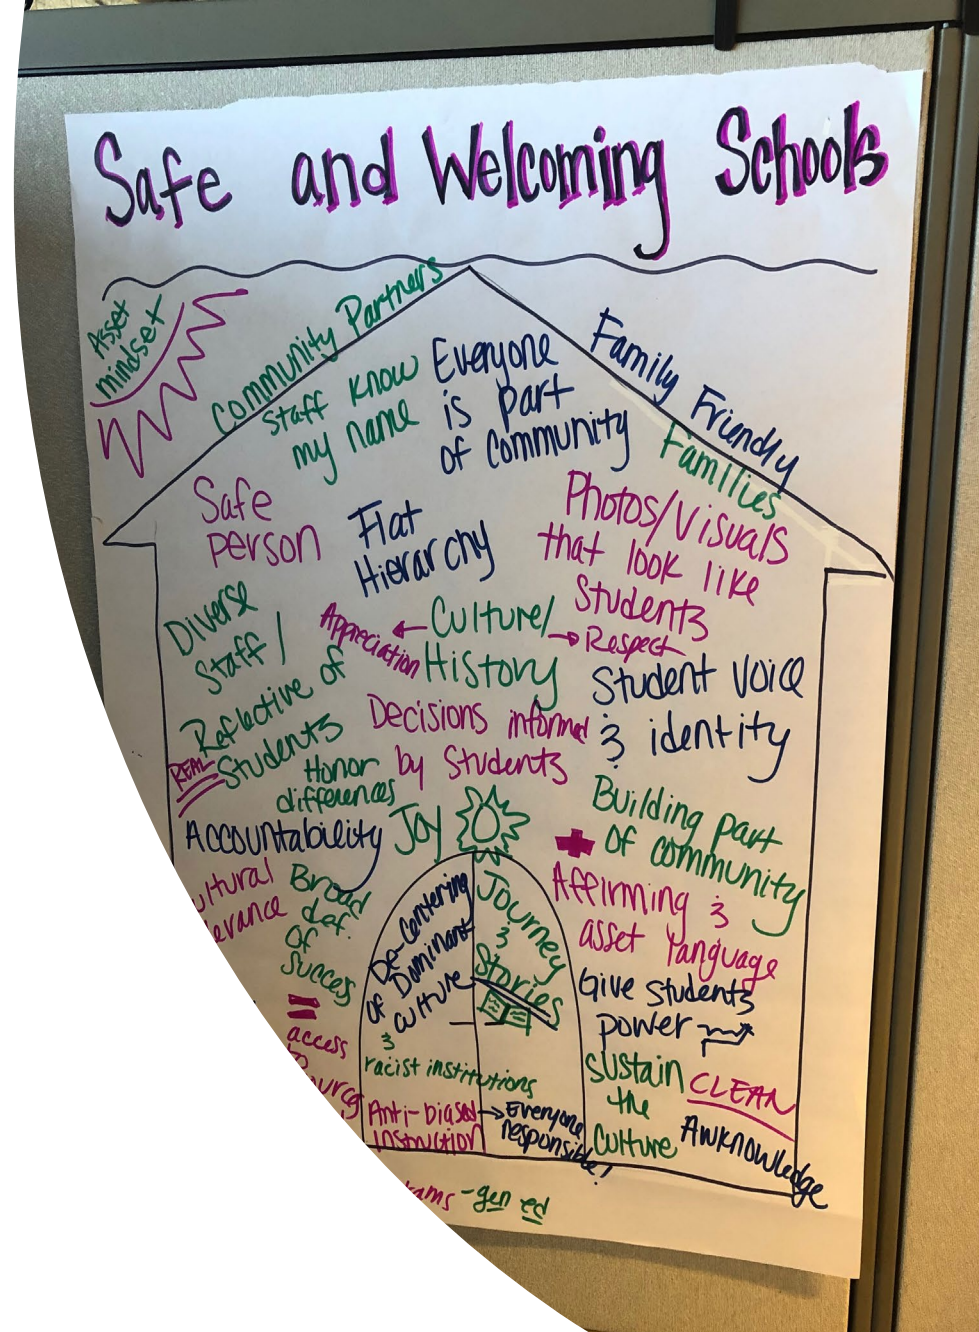 Safe and Welcoming Schools
Asset
mindset
Community Partners
Family Friendly
Families
Staff know
my name
Everyone
is part
of community
Safe
person
Flat
Hierarchy
Photos/Visuals
that look like
Students
Diverse
Staff /
Reflective of
Students
REAL
Appreciation ← Culture/ → Respect
History
Student Voice
& identity
Decisions informed
by Students
Honor
differences
Accountability
Joy
Building part
of community
Broad
def.
of
Success
De-centering
of Dominant
culture
&
racist institutions
Journey
&
Stories
Affirming &
asset language
Give students
power
=
access
Anti-biased → Everyone
instruction responsible!
Sustain
the
Culture
CLEAN
Awknowledge
-gen ed